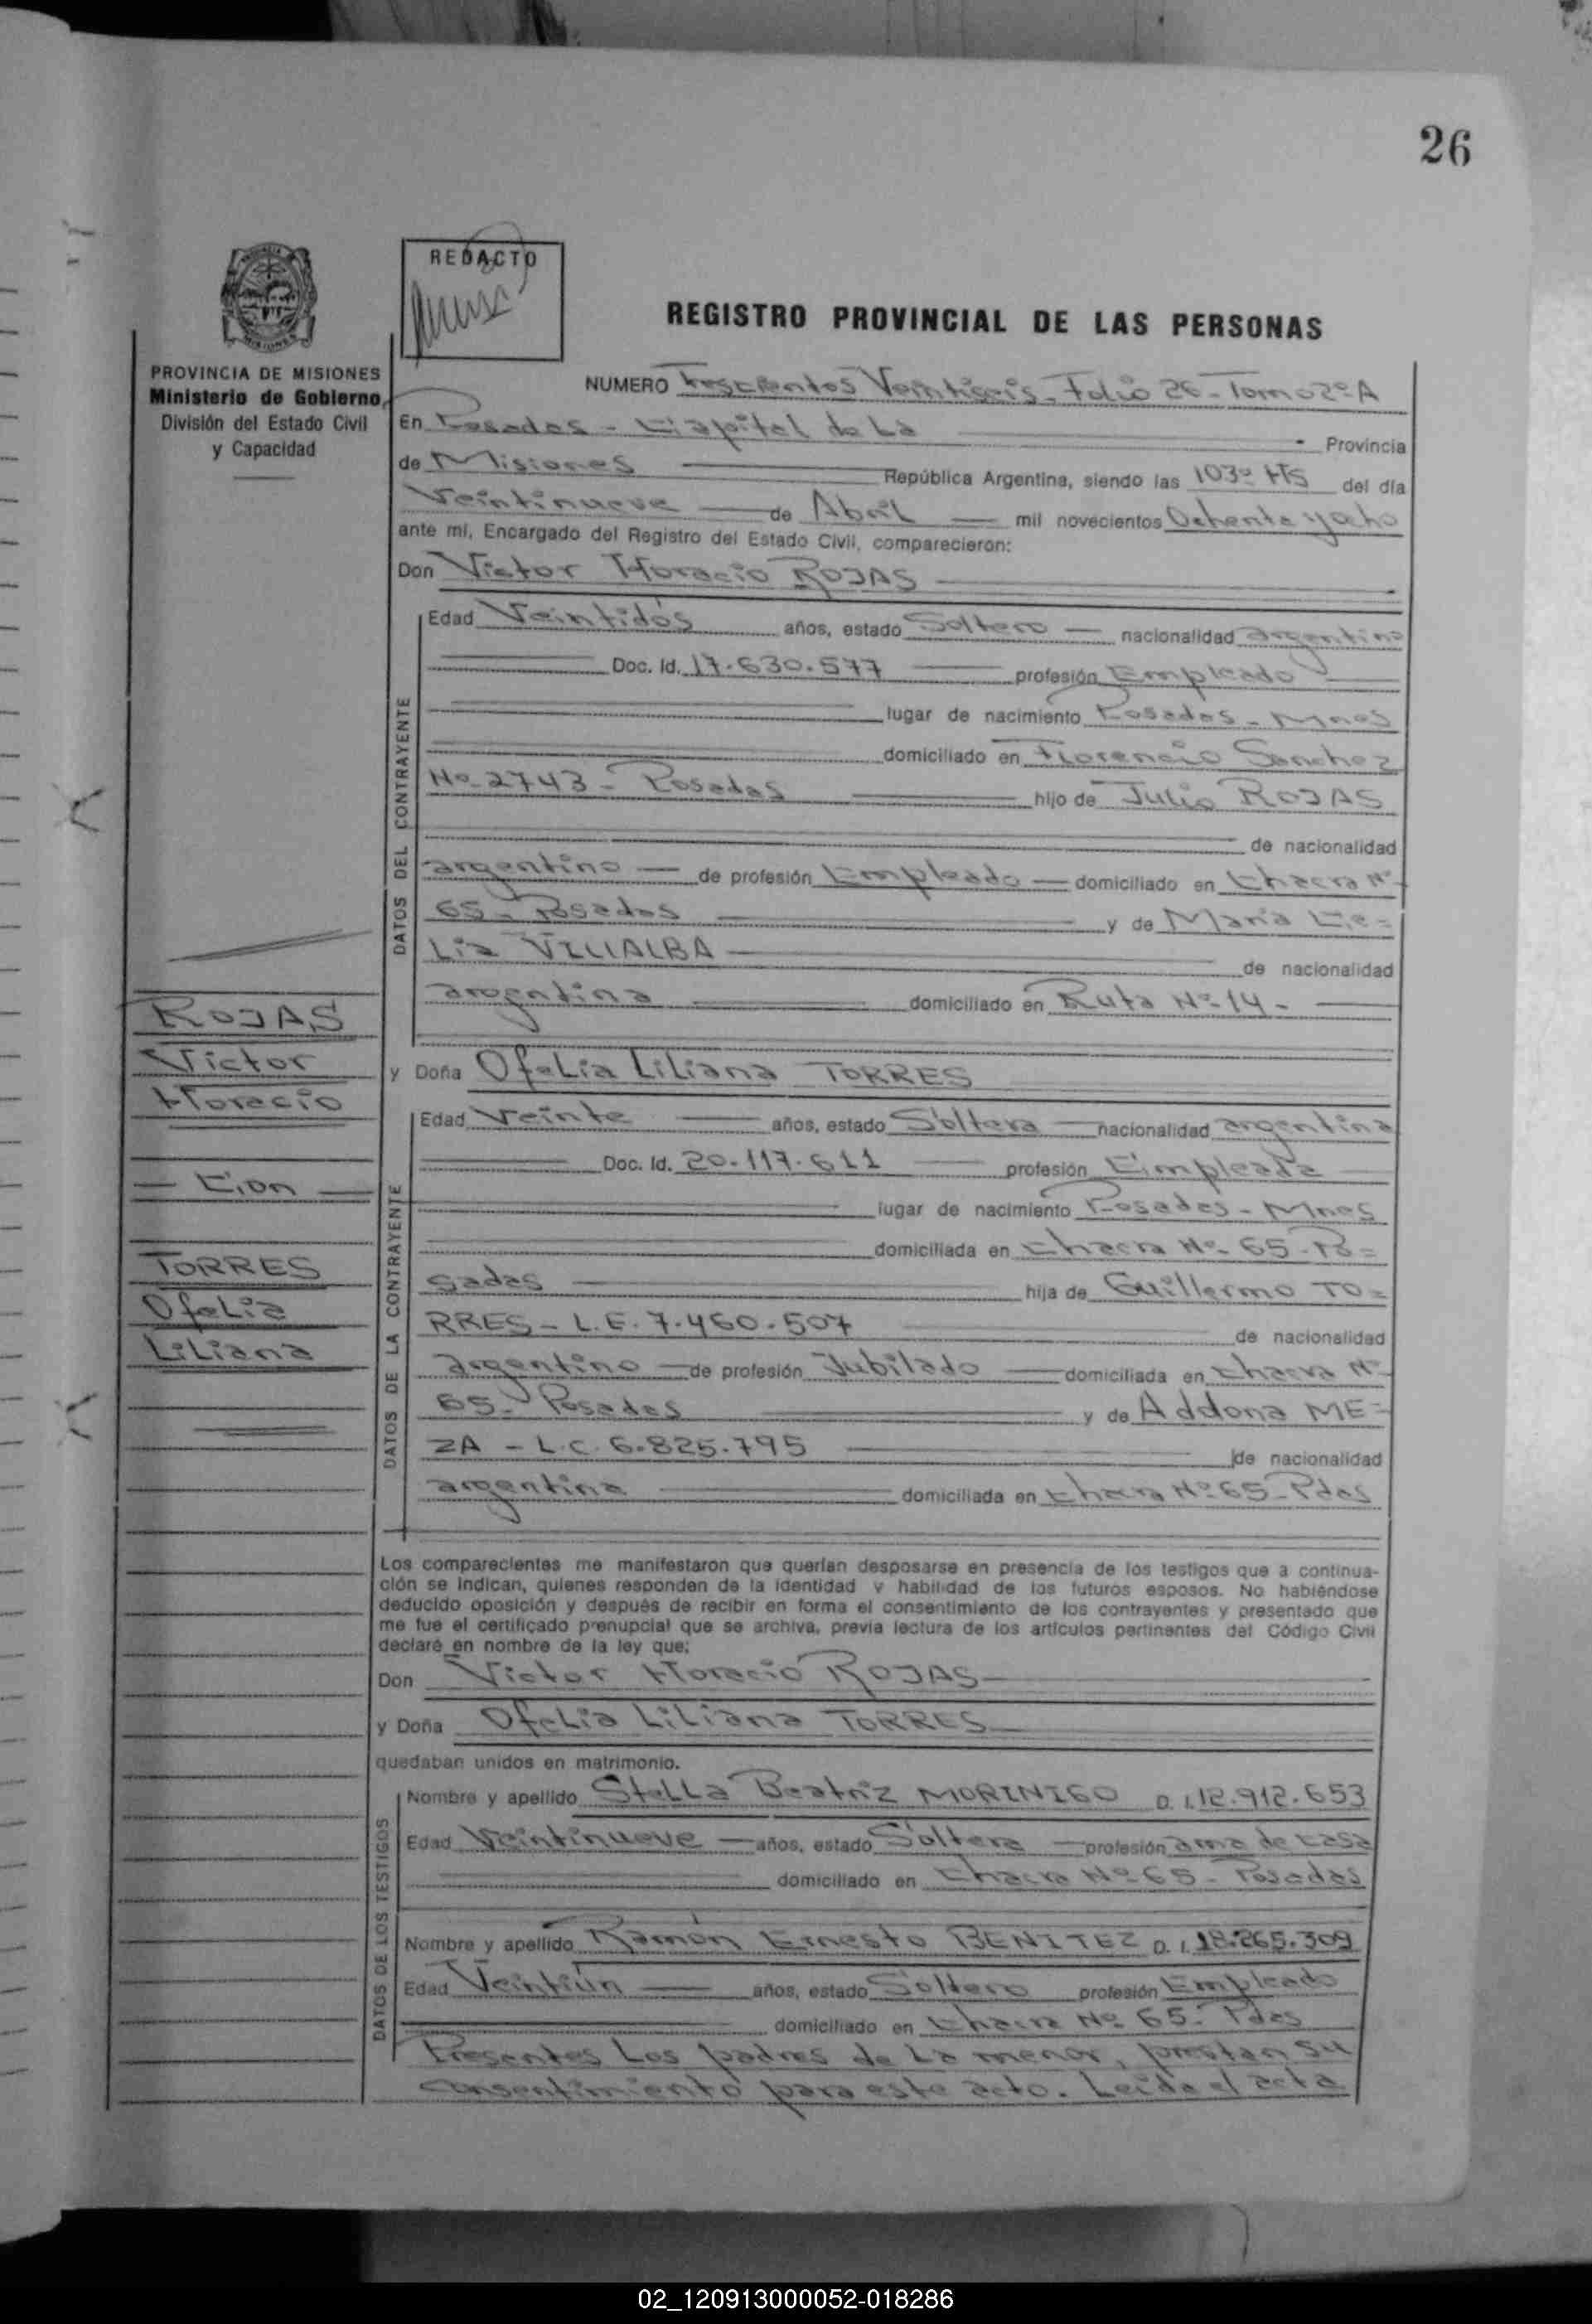 26
REDACTO
REGISTRO PROVINCIAL DE LAS PERSONAS
PROVINCIA DE MISIONES
Ministerio de Gobierno
División del Estado Civil
y Capacidad
NUMERO Trescientos Veintiseis - Folio 26 - Tomo 2º A
En Posadas - Capital de La Provincia
de Misiones República Argentina, siendo las 1030 HS del día
Veintinueve de Abril mil novecientos Ochenta y ocho
ante mí, Encargado del Registro del Estado Civil, comparecieron:
Don Victor Horacio ROJAS
DATOS DEL CONTRAYENTE
Edad Veintidós años, estado Soltero nacionalidad argentino
Doc. Id. 17.630.577 profesión Empleado
lugar de nacimiento Posadas - Mnes
domiciliado en Florencio Sanchez
Nº 2743 - Posadas hijo de Julio ROJAS
de nacionalidad
argentino de profesión Empleado domiciliado en Chacra Nº
65 - Posadas y de Maria Ce=
Lia VILLALBA
de nacionalidad
argentina domiciliado en Ruta Nº 14 -
y Doña Ofelia Liliana TORRES
DATOS DE LA CONTRAYENTE
Edad Veinte años, estado Soltera nacionalidad argentina
Doc. Id. 20.117.611 profesión Empleada
lugar de nacimiento Posadas - Mnes
domiciliada en Chacra Nº 65 - Po=
sadas hija de Guillermo TO=
RRES - L.E. 7.460.507 de nacionalidad
argentino de profesión Jubilado domiciliada en Chacra Nº
65 - Posadas y de Addona ME=
ZA - L.C. 6.825.795 de nacionalidad
argentina domiciliada en Chacra Nº 65 - Pdas
ROJAS
Victor
Horacio
- Con -
TORRES
Ofelia
Liliana
Los comparecientes me manifestaron que querían desposarse en presencia de los testigos que a continua-
ción se indican, quienes responden de la identidad y habilidad de los futuros esposos. No habiéndose
deducido oposición y después de recibir en forma el consentimiento de los contrayentes y presentado que
me fue el certificado prenupcial que se archiva, previa lectura de los artículos pertinentes del Código Civil
declaré en nombre de la ley que:
Don Victor Horacio ROJAS
y Doña Ofelia Liliana TORRES
quedaban unidos en matrimonio.
DATOS DE LOS TESTIGOS
Nombre y apellido Stella Beatriz MORINIGO D. I. 12.912.653
Edad Veintinueve años, estado Soltera profesión ama de casa
domiciliado en Chacra Nº 65 - Posadas
Nombre y apellido Ramón Ernesto BENITEZ D. I. 18.265.309
Edad Veintiún años, estado Soltero profesión Empleado
domiciliado en Chacra Nº 65 - Pdas
Presentes Los padres de La menor, prestan su
consentimiento para este acto. Leida el acta
02_120913000052-018286